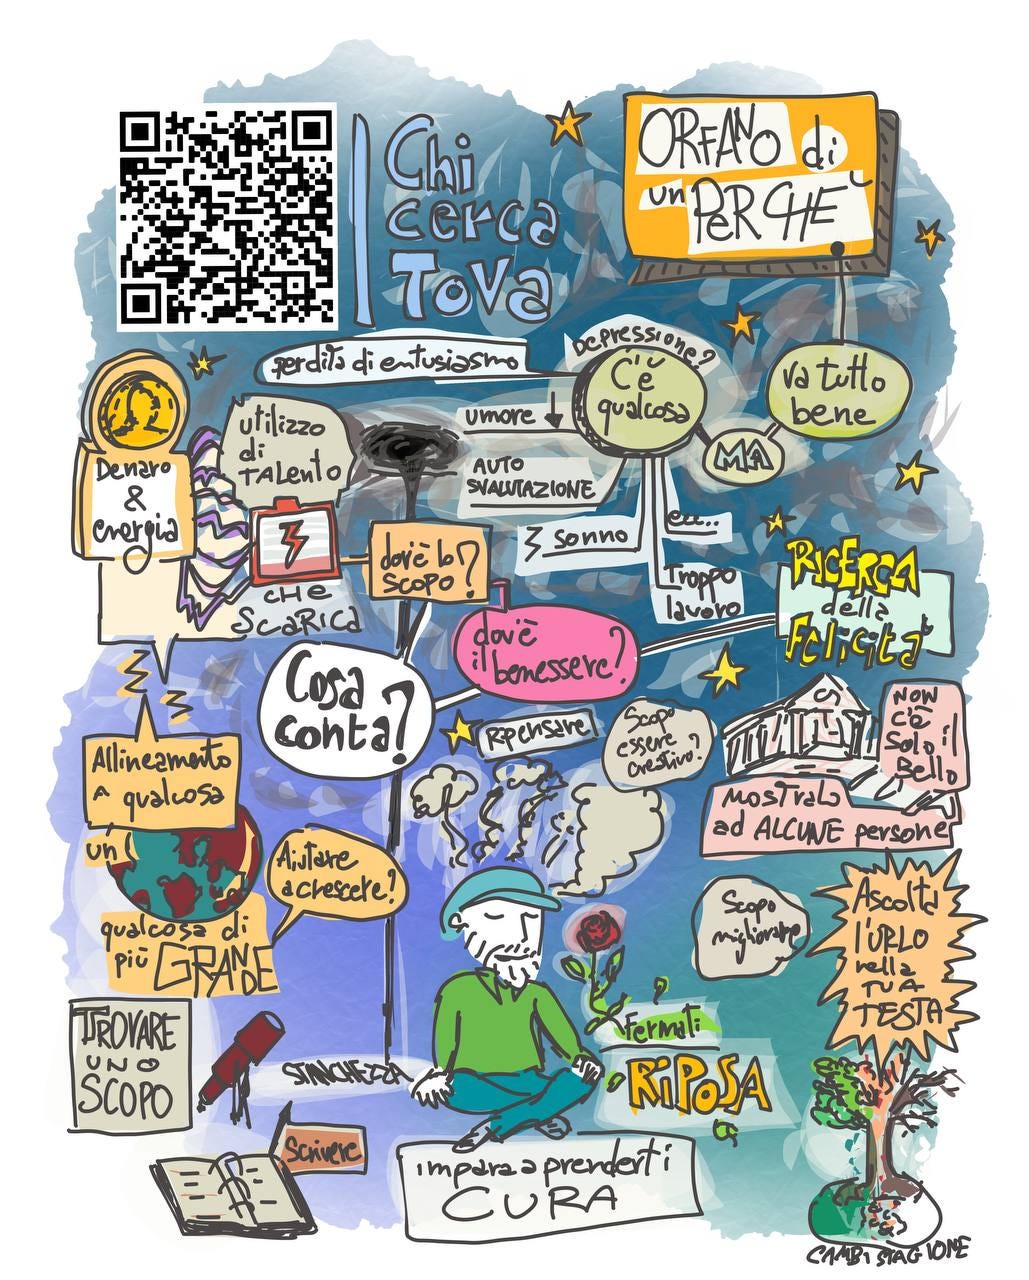 Chi
cerca
Tova
ORFANO di
un PERCHE'
perdita di entusiasmo
DEPRESSIONE?
C'è
qualcosa
MA
va tutto
bene
umore
AUTO
SVALUTAZIONE
sonno
ecc..
Troppo
lavoro
Denaro
&
energia
utilizzo
di
TALENTO
CHE
SCARICA
dov'è lo
SCOPO?
dov'è
il benessere?
RICERCA
della
Felicità
Cosa
conta?
Ripensare
Scopo
essere
creativo?
NON
c'è
Solo il
Bello
MOSTRALO
ad ALCUNE persone
Allineamento
A qualcosa
un
qualcosa di
più GRANDE
Aiutare
a crescere?
Scopo
migliorare
Ascolta
l'URLO
nella
TUA
TESTA
TROVARE
UNO
SCOPO
STANCHEZZA
Fermati
RIPOSA
Scrivere
impara a prenderti
CURA
CAMBI STAGIONE